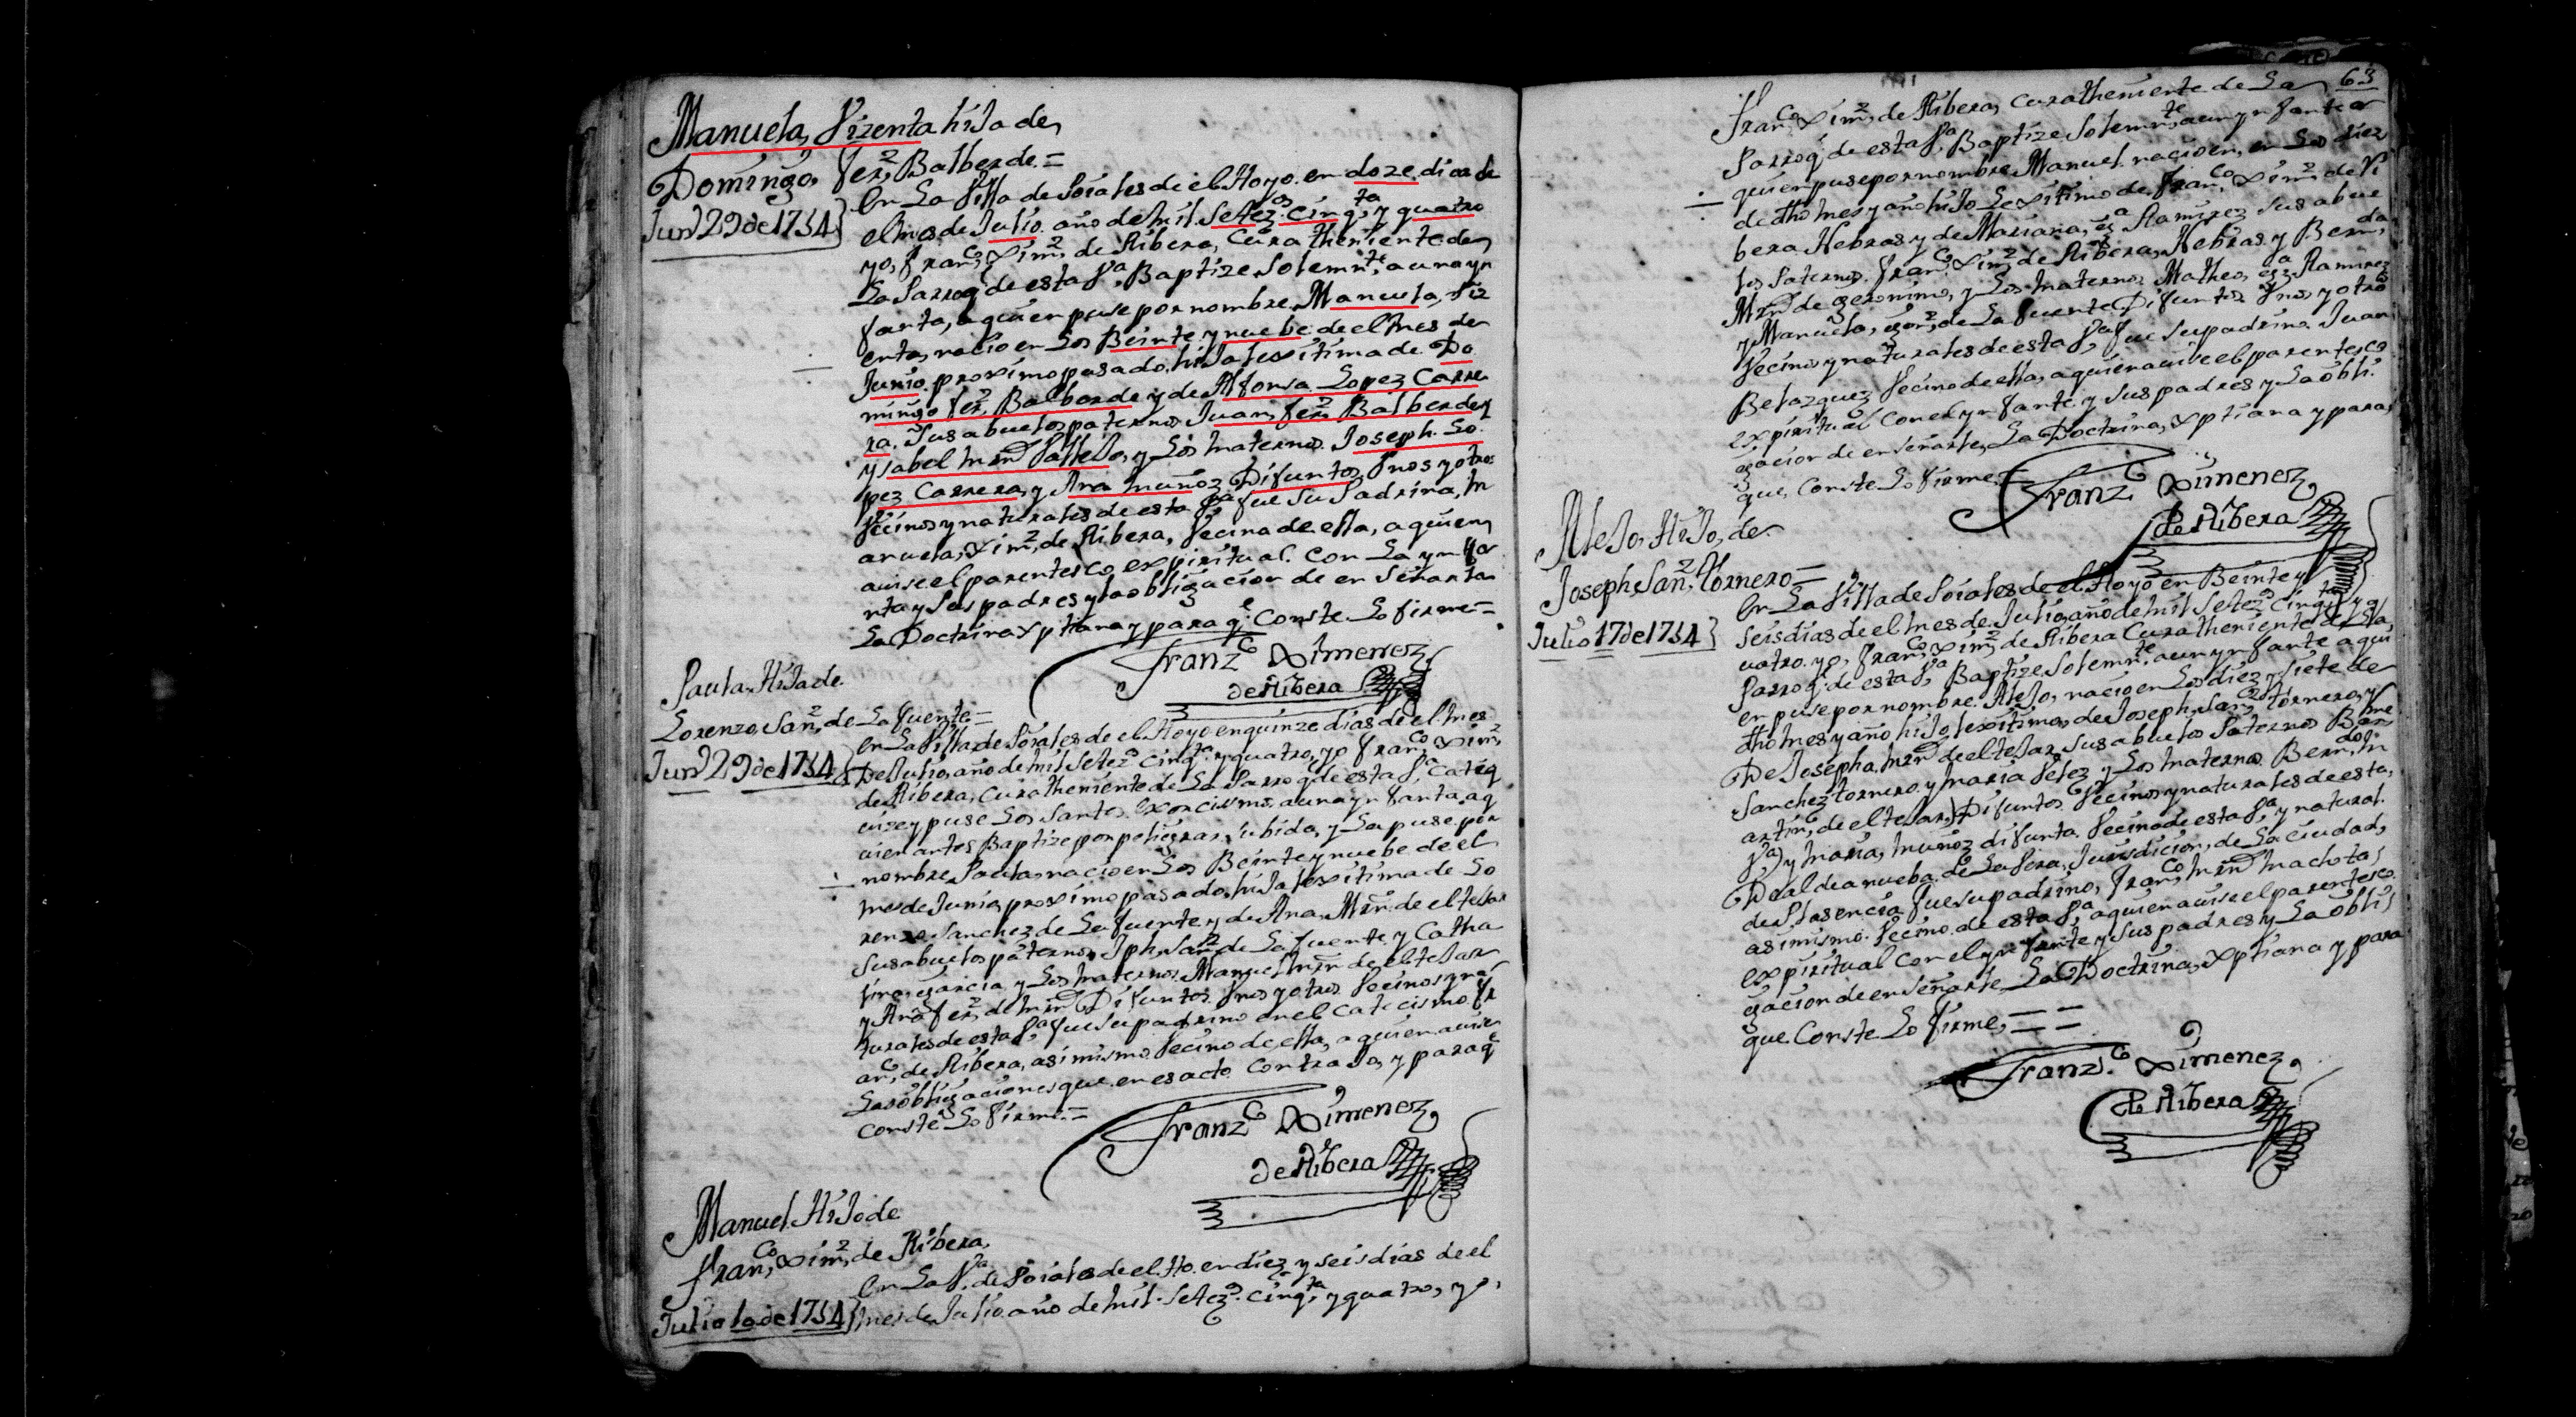 Manuela, Vizenta hiJa de,
Domingo, fer,z Balberde.=
Jun,o 29 de 1754}
En La Villa de Poiales de el Hoyo. en doze, dias de
el mes de Julio. año de mil. Setez.os cinq,ta y quatro
yo, fran,co Xim,z de Ribera, Cura theniente de,
La Parroq,l de esta V,a Baptize, Solemn,te a una yn
fanta, a quien puse por nombre, Manuela, Viz
enta, nacio en Los Beinte, y nuebe, de el mes de
Junio. proximo pasado, hiJa lexitima de. Do
mingo fer,z Balberde y de, Alfonsa Lopez Carre
ra. Sus abuelos paternos Juan, fer,z Balberde y
ysabel mrn ValleJo, y Los maternos. Joseph. Lo.
pez Carrera, y Ana muñoz Difuntos. Vnos y otros
Vecinos y naturales de esta V,a fue Su Padrina, M
anuela, Xim,z de Ribera, Vecina de ella, a quien,
auise el parentesco expiritual. con La yn fa
nta y Sus padres y la obligacion de en Señarla
La Doctrina Xptiana y para q,e Conste Lo firme=
Franz.co Ximenez,
de Ribera
Paula, HiJa de.
Lorenzo, San,z de La fuente=
Jun,o 29 de 1754}
En La Villa de Poiales de el Hoyo en quinze dias de el mes
De Julio, año de mil Setez.os cinq.ta y quatro, yo fran,co Xim,z
de Ribera, Cura theniente de La Parroq,l de esta V,a Cateq
uize y puse Los Santos. exorcismos. a una yn fanta, a q
uien antes Baptize por peligrar Su bida, y La puse por
nombre Paula, nacio en Los Beinte y nuebe de el
mes de Junio, proximo pasado, hiJa lexitima de Lo
renzo Sanchez de La fuente, y de Ana, Mrn. de el teJar
Sus abuelos paternos Jph, San,z de La fuente y Catha
lina, garcia y Los maternos. Manuel mrn de el teJar
y Ana fer,z de mrn Difuntos. Vnos y otros Vecinos y na
turales de esta V,a fue Su padrino en el Catecismo. fr
an,co de Ribera, asi mismo Vecino de ella, a quien auise
Las obligaciones que, en es acto. ContraJo, y para q,e
Conste Lo firme.=
Franz,co Ximenez,
de Ribera
Manuel. HiJo de
fran,co Xim,z de Ribera,
Julio 10 de 1754}
En La V,a de Poiales de el. Ho. en diez y seis dias de el
mes de Julio. año de mil. Setez.os cinq,ta y quatro, yo,
63
Fran,co Xim,z de Ribera, Cura theniente de La
Parroq,l de esta V,a Baptize Solemn,te a un yn fante a
quien puse por nombre, Manuel. nacio en, en Los diez
de dho mes y año hiJo Lexitimo de, fran,co Xim,z de Ri
bera Hebras y de Mariana, g,a Ramirez Sus abue
los Paternos. fran,co Xim,z de Ribera, Hebras y Bern,da
Mrn de geronimo, y Los maternos Matheo, g,a Ramirez
y Manuela, de La fuente Difuntos Vnos y otros
Vecinos y naturales de esta V,a fue Su padrino. Juan
Belazquez Vecino de ella, a quien auise el parentesco
expiritual con el yn fante, y Sus padres y La obli.
gacion de enSeñarle, La Doctrina, Xptiana y para,
que, Conste Lo firme,=
Franz.co Ximenez,
de Ribera
AleJo, HiJo, de.
Joseph, San,z tornero=
Julio 17 de 1754}
En La Villa de Poiales de el Hoyo en Beinte y
seis dias de el mes de. Julio, año de mil Setez.os Cinq,ta y q
uatro. yo, fran,co Xim,z de Ribera Cura theniente de La,
Parroq,l de esta V,a Baptize. Solemn,te a un yn fante a qui
en puse por nombre. AleJo, nacio en Los diez y siete de
dho mes y año hiJo, lexitimo, de Joseph, San,z tornero, y
De Josepha. mrn de el teJar, Sus abuelos Paternos Bar,me
Sanchez tornero. y maria Velez y Los maternos. Bern,do M
artin, de el teJar, Difuntos Vecinos y naturales de esta,
V,a y maria, muñoz difunta. Vecina de esta V,a y natural.
De aldeanueba de La Vera, Jurisdicion, de La ciudad,
de Plasencia fue su padrino, fran,co mrn machota,
asimismo. Vecino. de esta V,a a quien auise el parentesco.
expiritual con el yn fante y Sus padres y La obli
gacion de enSeñarle La Doctrina, Xptiana y para
que. Conste Lo firme,= =
Franz.co Ximenez,
de Ribera